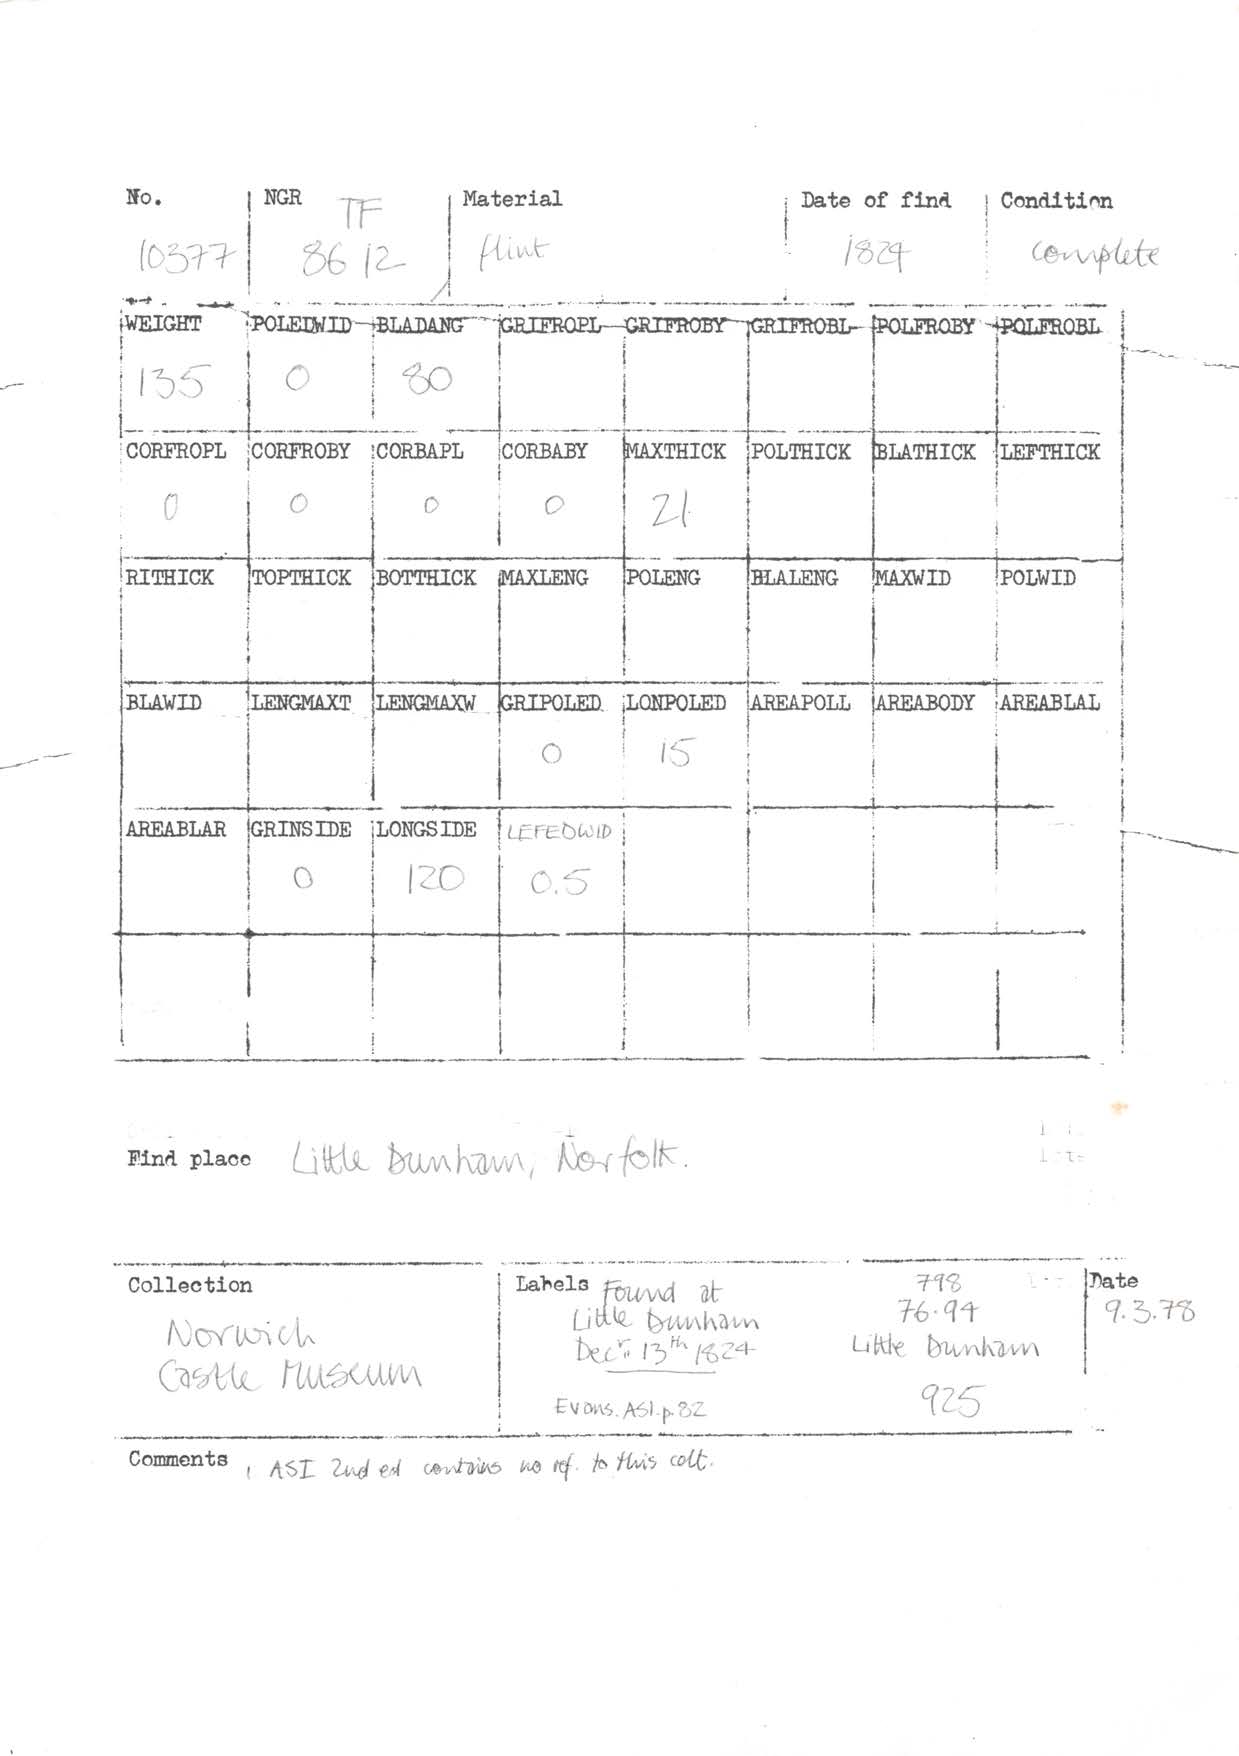 No. NGR Material Date of find Condition
TF
10377 86 12 flint 1824 complete
WEIGHT POLEDWID BLADANG GRIFROPL GRIFROBY GRIFROBL POLFROBY POLFROBL
135 0 80
CORFROPL CORFROBY CORBAPL CORBABY MAXTHICK POLTHICK BLATHICK LEFTHICK
0 0 0 0 21
RITHICK TOPTHICK BOTTHICK MAXLENG POLENG BLALENG MAXWID POLWID
BLAWID LENGMAXT LENGMAXW GRIPOLED LONPOLED AREAPOLL AREABODY AREABLAL
0 15
AREABLAR GRINSIDE LONGSIDE LEFEDWID
0 120 0.5
Find place Little Dunham, Norfolk.
Collection
Norwich
Castle Museum
Labels Found at
Little Dunham
Decr. 13th 1824
Evans. ASI. p. 82
798
76.94
Little Dunham
925
Date
9.3.78
Comments ASI 2nd ed contains no ref. to this celt.